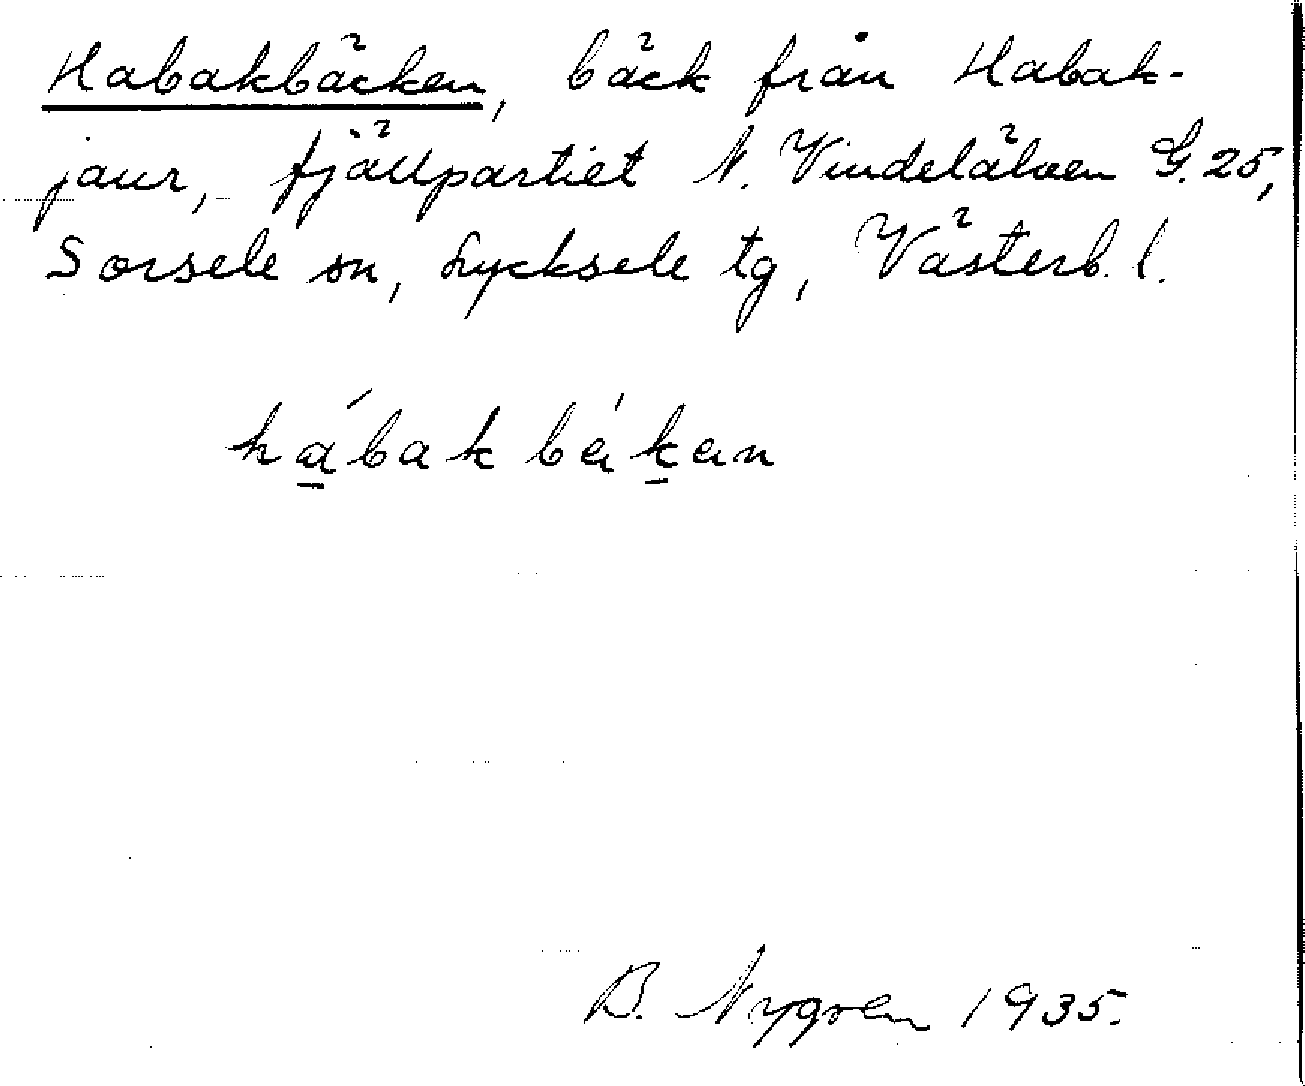 Habakbäcken, bäck från Habak-
jaur, fjällpartiet N. Vindelälven G. 25,
Sorsele sn, Lycksele tg, Västerb. l.
hábakbäkan
B. Nygren 1935.